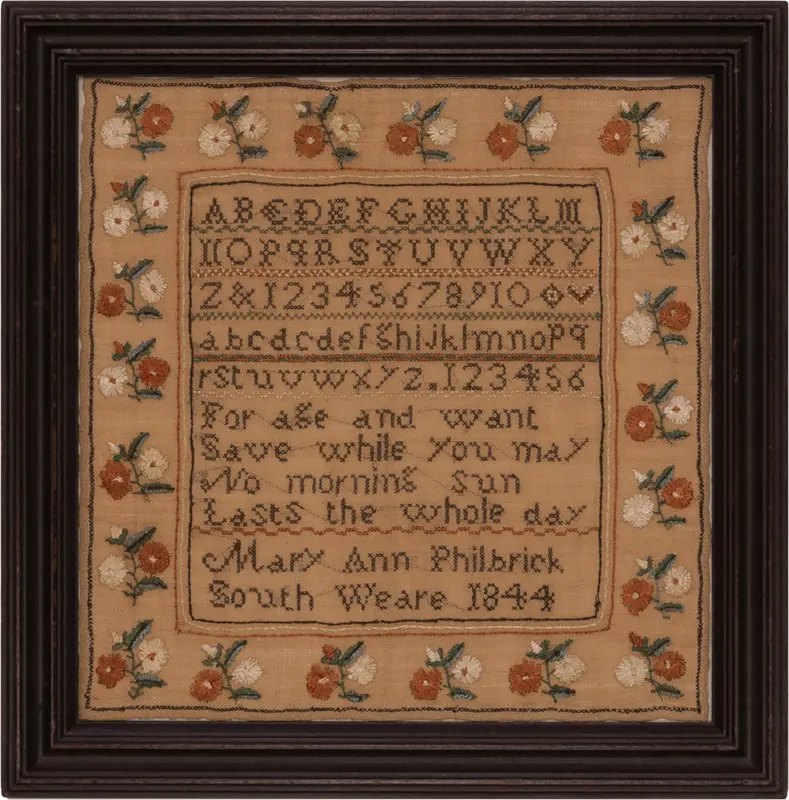 ABCDEFGHIJKLM
NOPQRSTUVWXY
Z&12345678910
abcdcdefghijklmnopq
rstuvwxyz.123456
For age and want
Save while you may
No morning sun
Lasts the whole day
Mary Ann Philbrick
South Weare 1844